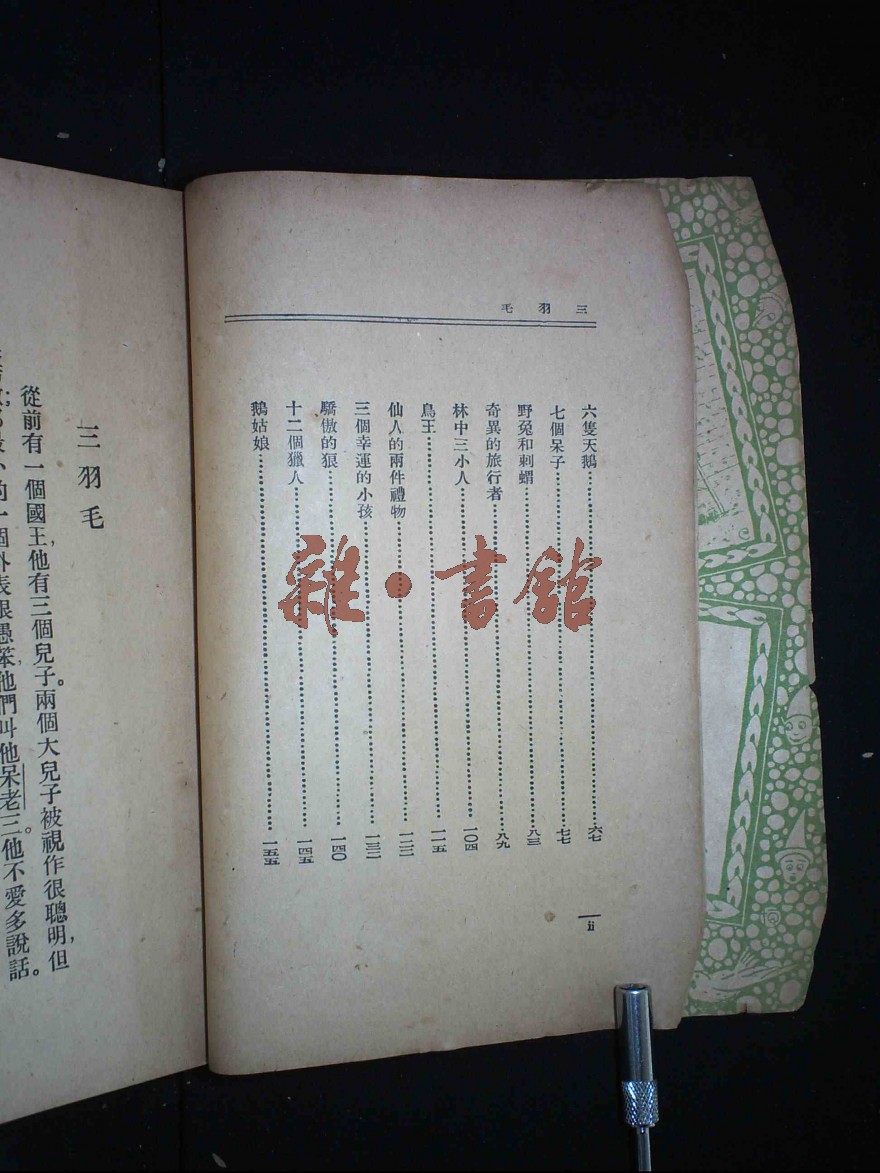 三羽毛
六隻天鵝……六七
七個呆子……七七
野兔和刺蝟……八三
奇異的旅行者……八九
林中三小人……一〇四
鳥王……一一五
仙人的兩件禮物……一二二
三個幸運的小孩……一三二
驕傲的狼……一四〇
十二個獵人……一四五
鵝姑娘……一五五
ii
雜·書館
三羽毛
從前有一個國王,他有三個兒子。兩個大兒子被視作很聰明,但
的一個外表很愚笨,他們叫他呆老三。他不愛多說話。